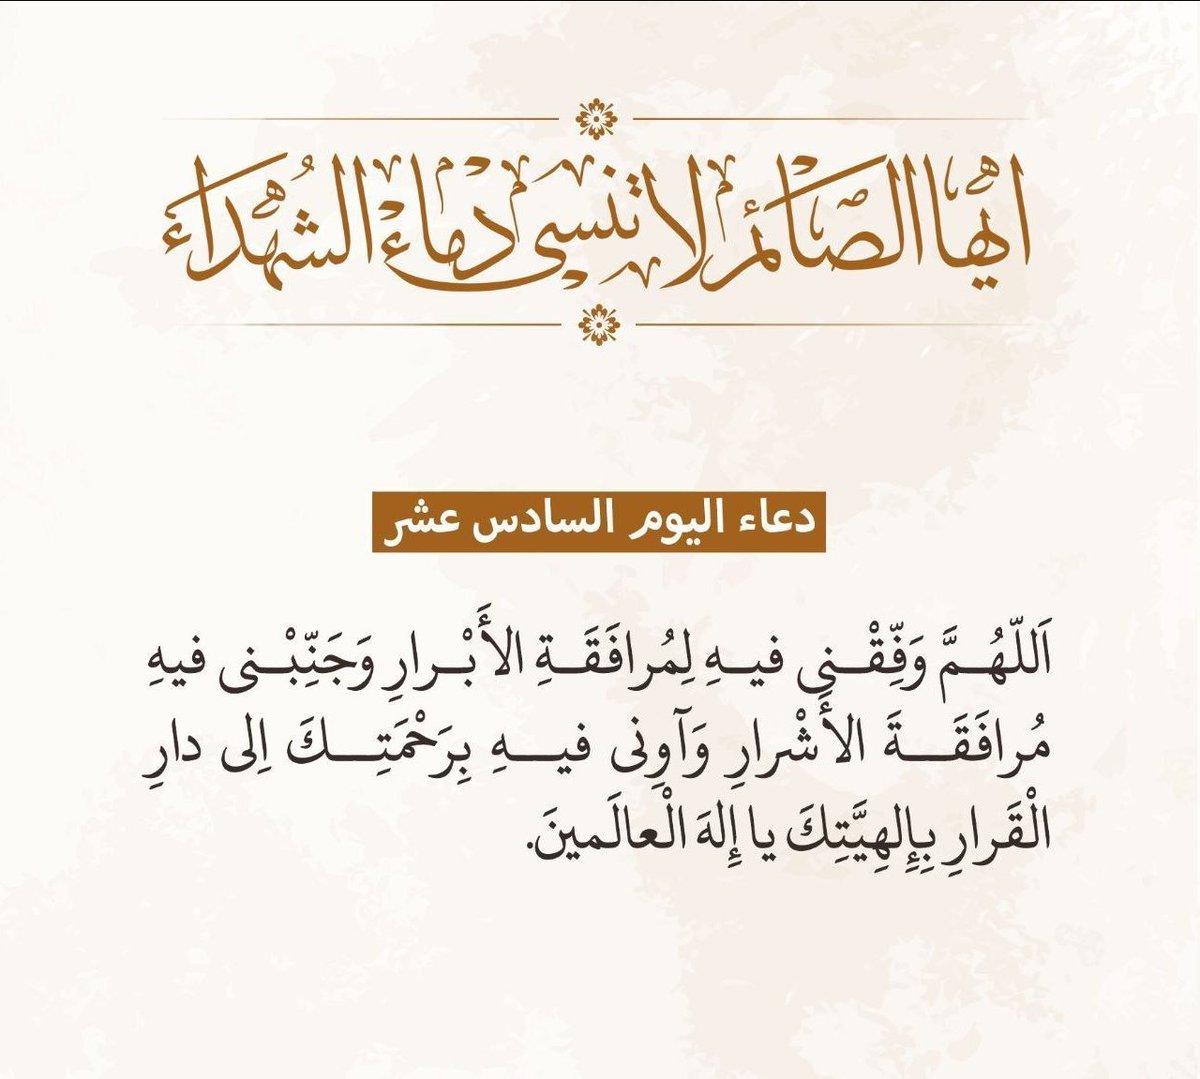 ايها الصائم لا تنسى دماء الشهداء
دعاء اليوم السادس عشر
اَللّهُمَّ وَفِّقْنى فيهِ لِمُرافَقَةِ الأَبْرارِ وَجَنِّبْنى فيهِ
مُرافَقَةَ الأَشْرارِ وَآوِنى فيهِ بِرَحْمَتِكَ اِلى دارِ
الْقَرارِ بِإِلهِيَّتِكَ يا إِلهَ الْعالَمينَ.